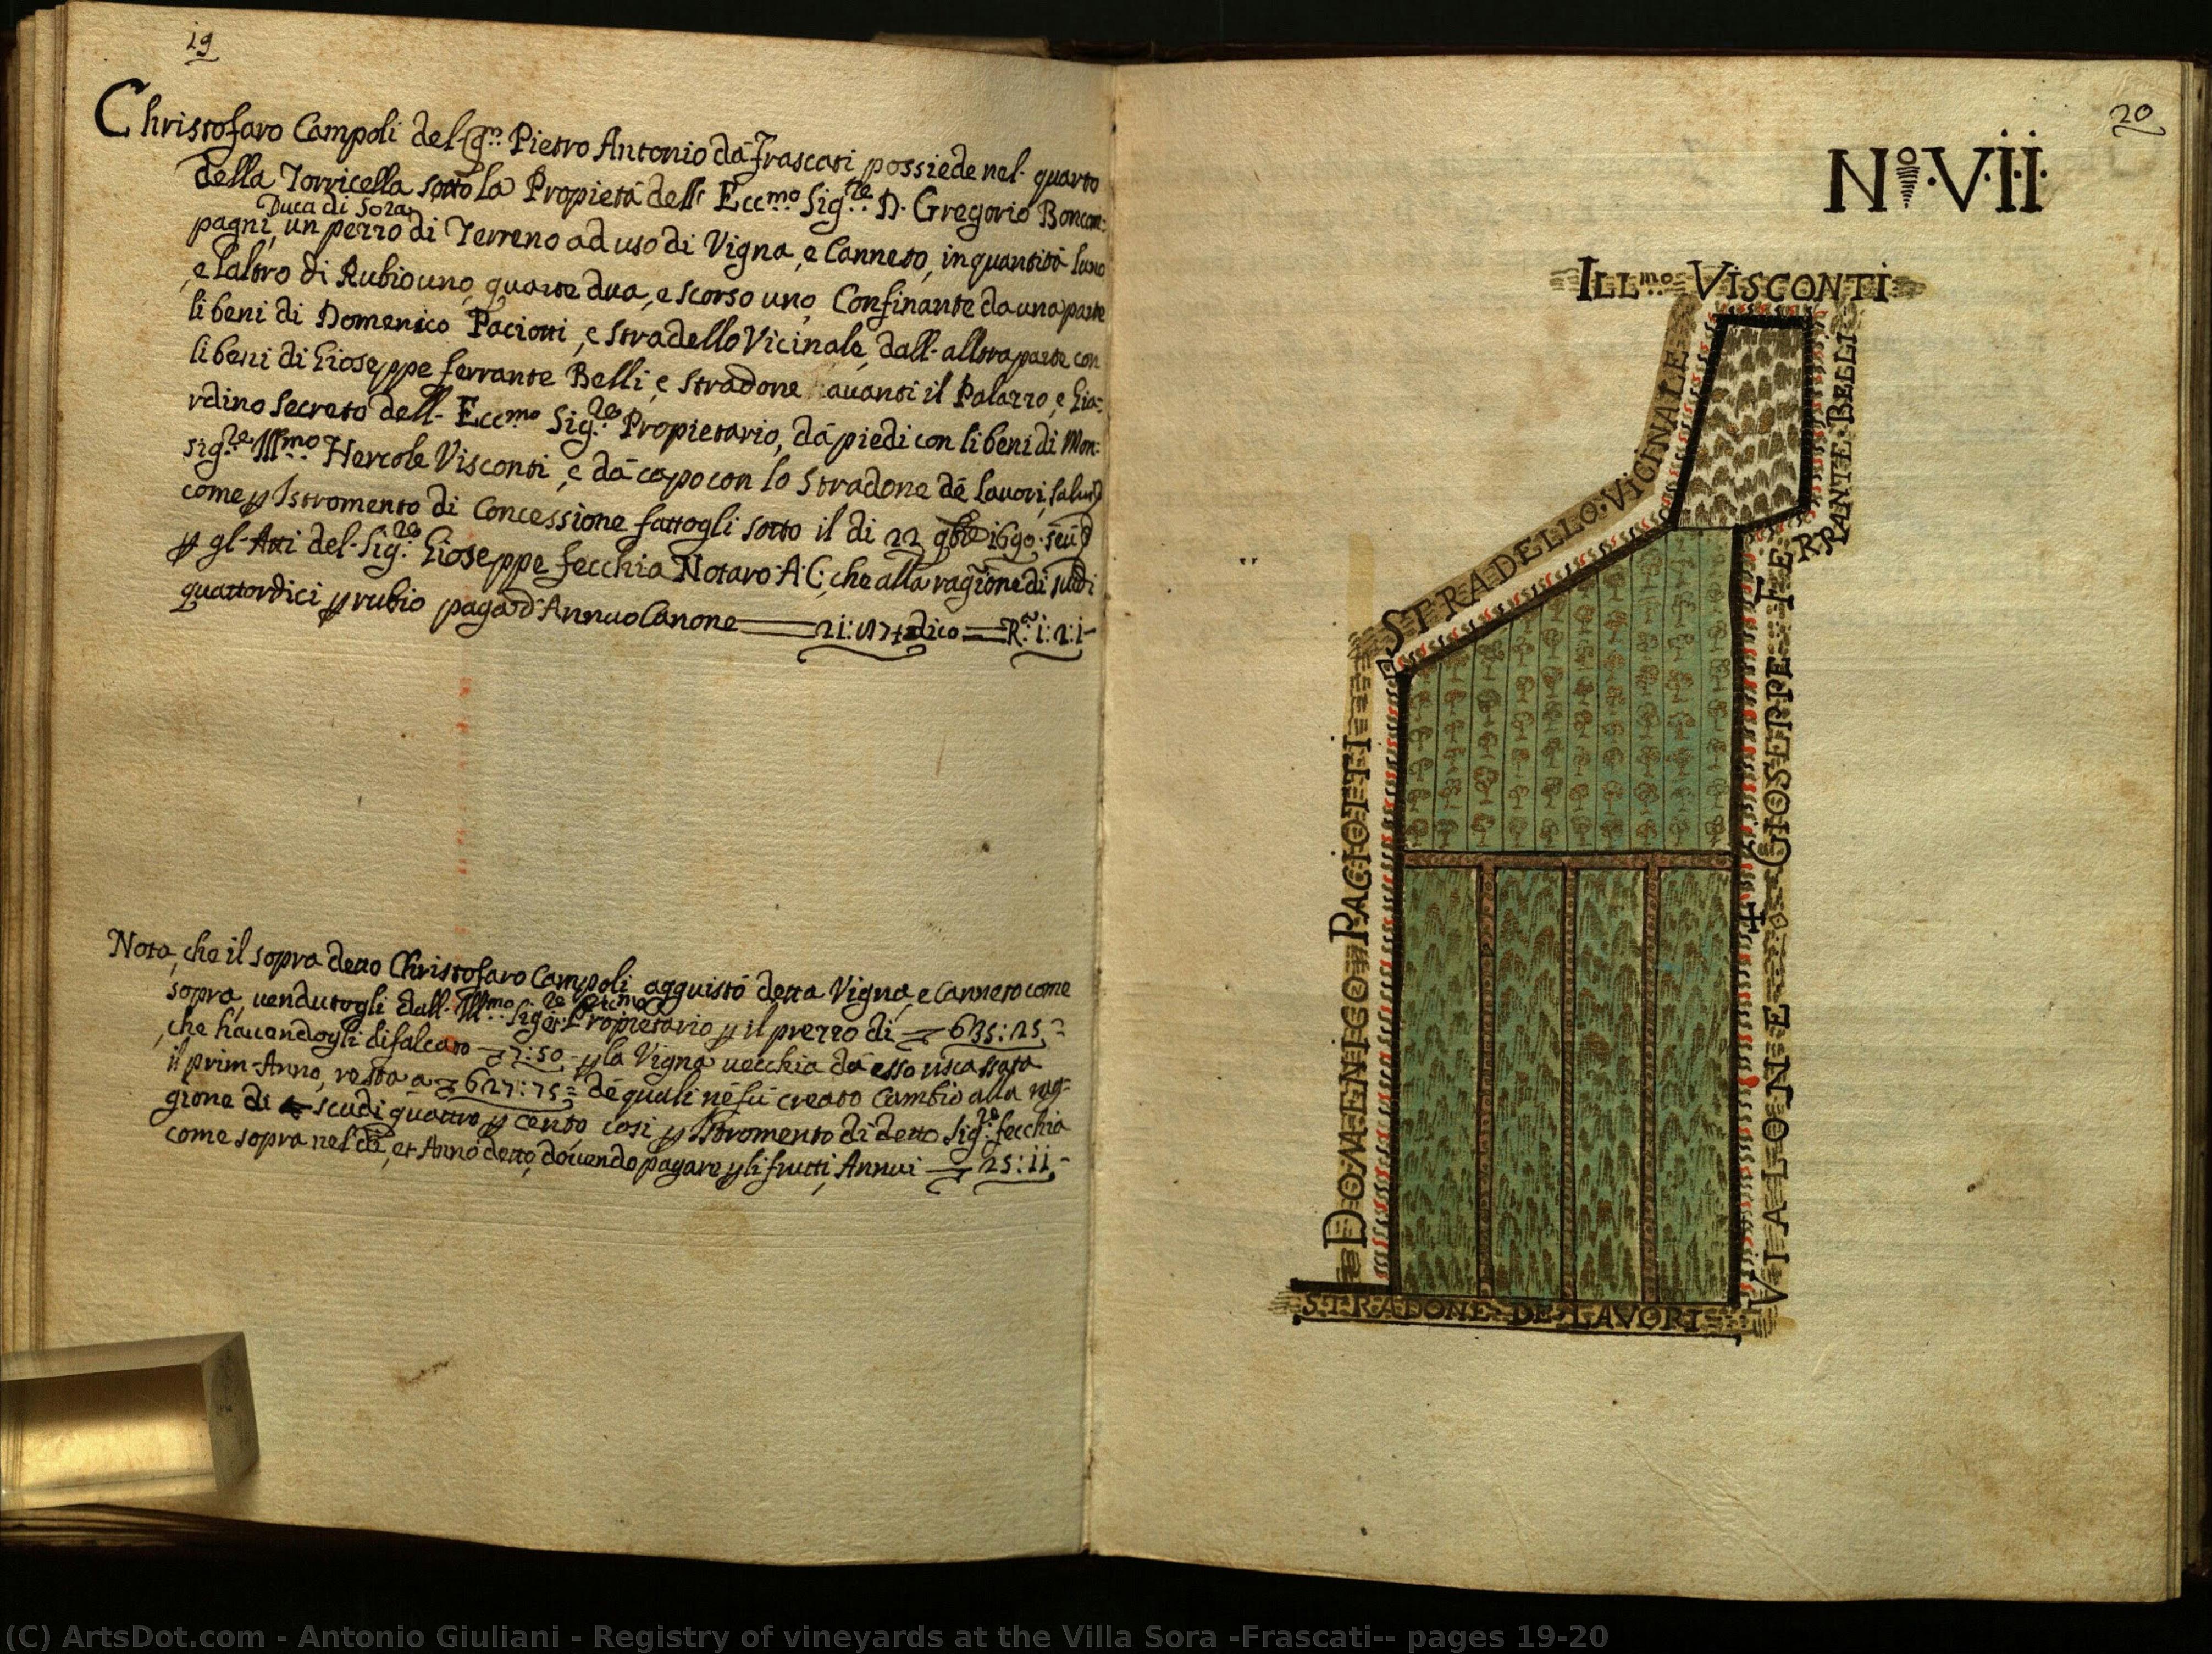 19
Christofaro Campoli del qm. Pietro Antonio dà Frascati possiede nel quarto
della Torricella sotto la Propietà dell Eccmo. Sigre. D. Gregorio Boncom:
Duca di Sora
pagni, un pezzo di Terreno ad uso di Vigna, e Canneto, in quantità luno
e laltro di Rubio uno, quarte dua, e scorso uno, Confinante da una parte
li beni di Domenico Paciotti, e stradello Vicinale, dall-alltra parte con
li beni di Gioseppe ferrante Belli, e stradone avanti il Palazzo, e Gia:
rdino secreto dell- Eccmo Sigre. Propietario, dà piedi con li beni di Mon:
sigre. Illmo. Hercole Visconti, e dà capo con lo Stradone dè Lavori,
come p Istromento di Concessione fattogli sotto il di 22 9bre 1690.
p gl-Atti del-Sigre. Gioseppe fecchia Notaro A.C. che alla ragione di scudi
quattordici p rubio paga d'Annuo Canone dico R. 1:2:1-
Nota, che il sopra detto Christofaro Campoli acquistò detta Vigna, e Canneto come
sopra, vendutogli dall- Illmo. Sige. Propietario p il prezzo di 635:25
che havendogli difalcato 7:50 p la Vigna vecchia dà esso riscassata
il prim-Anno, resta a 627:75 dè quali nè fù creato Cambio alla rag-
gione di scudi quattro p cento, così p Istromento di detto Sigre. fecchia
come sopra nel dì, et Anno detto, dovendo pagare p li frutti Annui 25:11
20
No. VII
ILLmo. VISCONTI
STRADELLO VICINALE
GIOSEPPE FERRANTE BELLI
DOMENICO PACIOTTI
VIALONE
STRADONE DE LAVORI
(C) ArtsDot.com - Antonio Giuliani - Registry of vineyards at the Villa Sora -Frascati-- pages 19-20